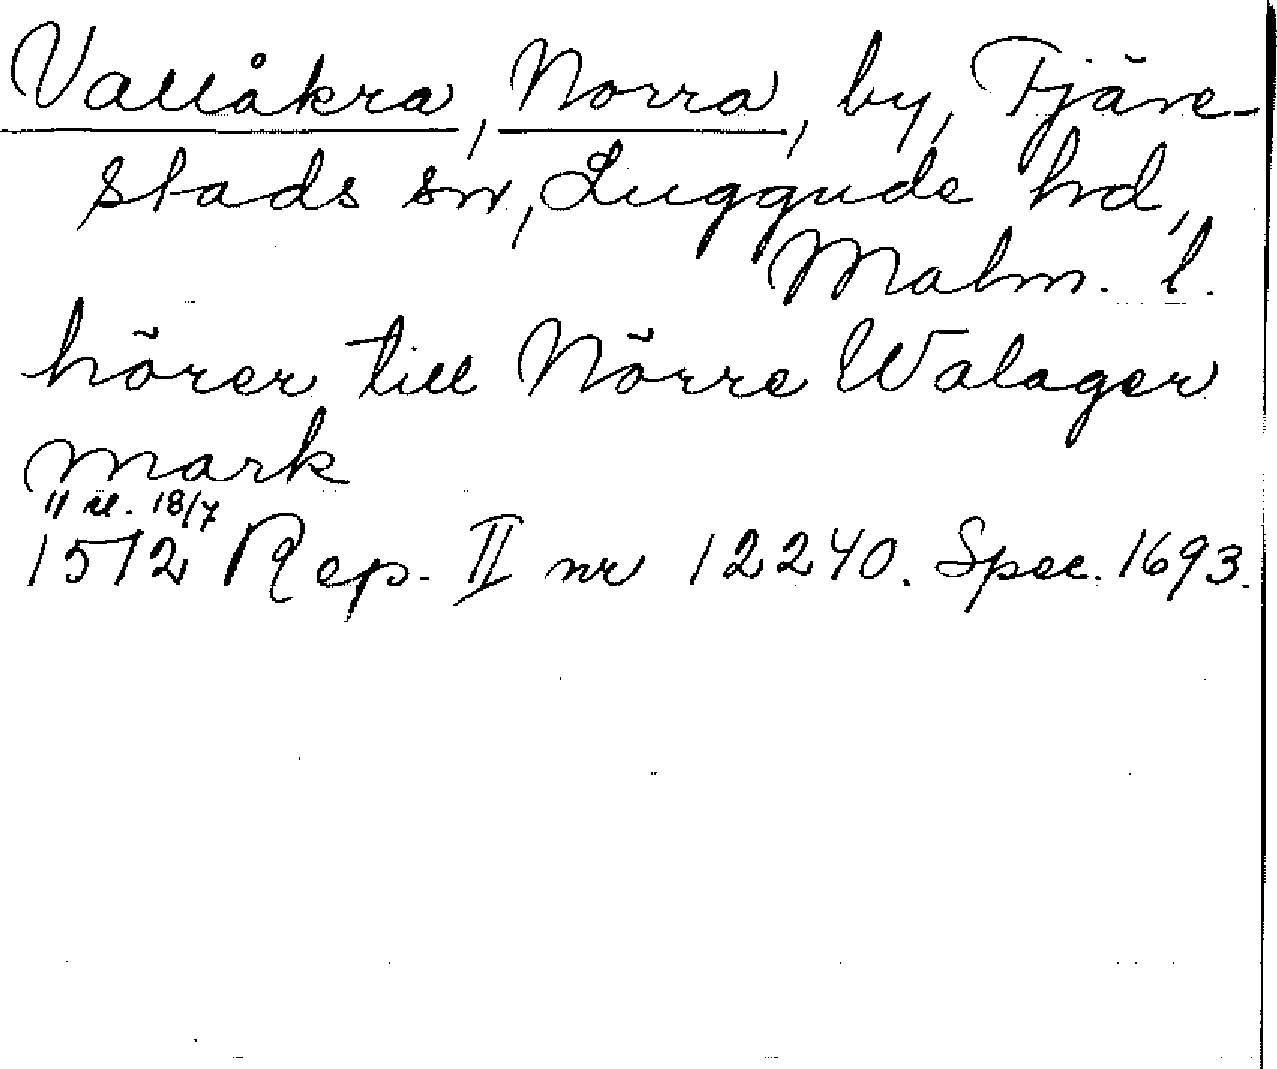 Vallåkra, Norra, by, Tjäre-
stads sn, Luggude hd,
Malm. l.
hörer till Nörre Walager
mark
18/7
1512 Rep. II nr 12240. Spec. 1693.